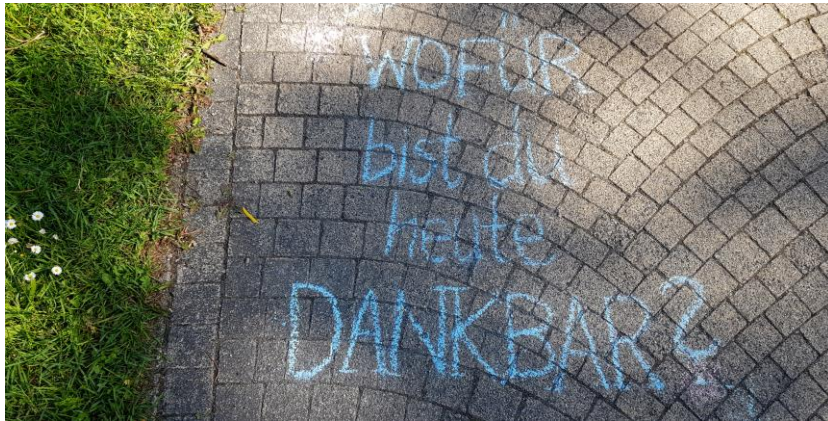 WOFÜR
bist du
heute
DANKBAR?